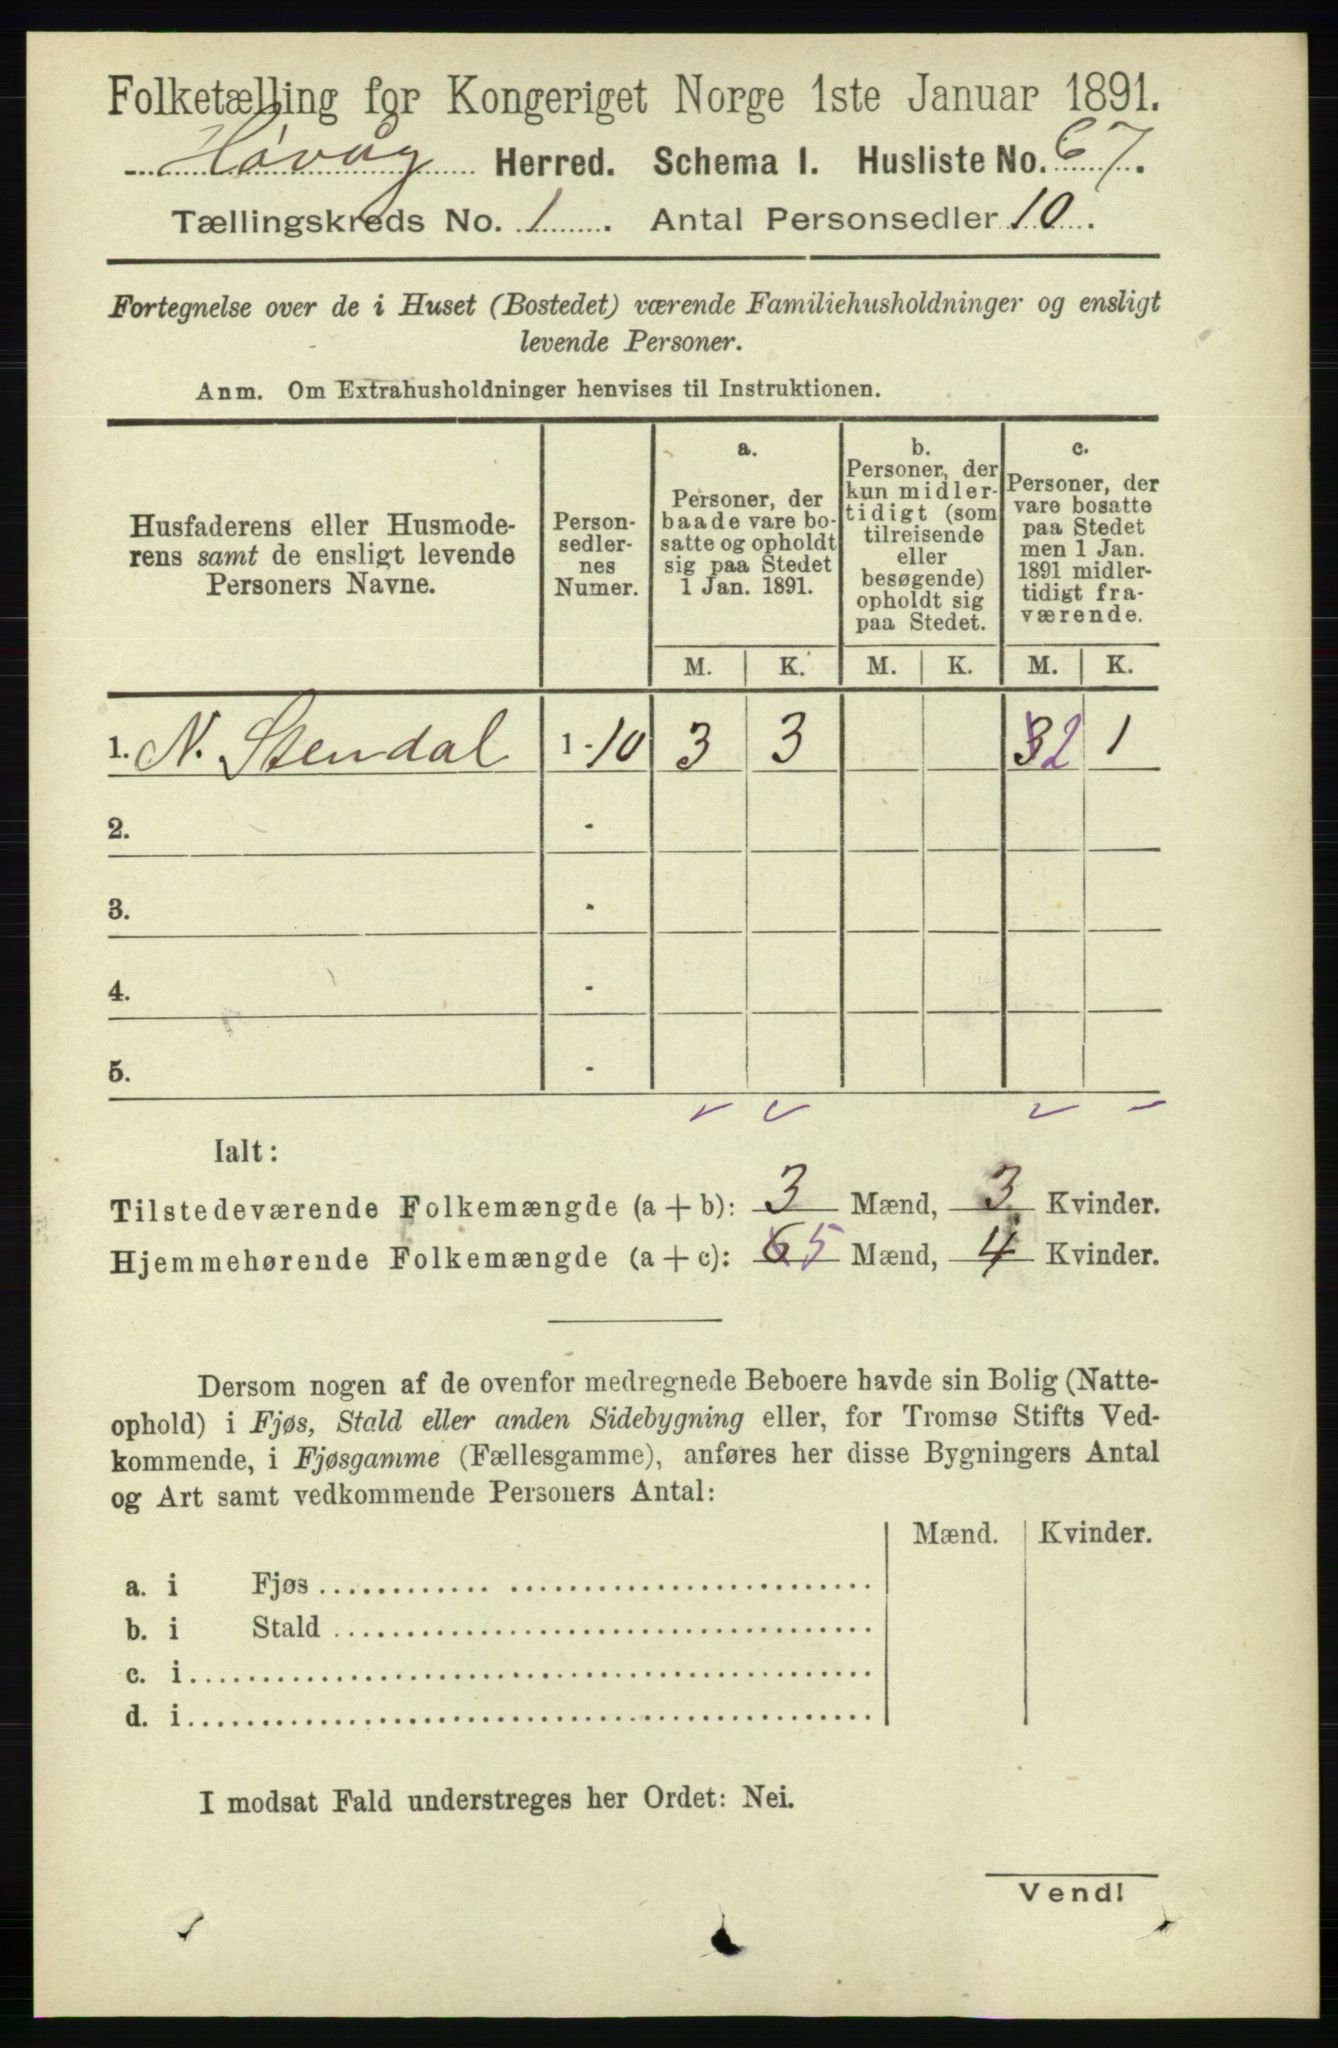 Folketælling for Kongeriget Norge 1ste Januar 1891.
Høvåg Herred. Schema I. Husliste No. 67.
Tællingskreds No. 1. Antal Personsedler 10.
Fortegnelse over de i Huset (Bostedet) værende Familiehusholdninger og ensligt
levende Personer.
Anm. Om Extrahusholdninger henvises til Instruktionen.
Husfaderens eller Husmode-
rens samt de ensligt levende
Personers Navne.
Person-
sedler-
nes
Numer.
a.
Personer, der
baade vare bo-
satte og opholdt
sig paa Stedet
1 Jan. 1891.
b.
Personer, der
kun midler-
tidigt (som
tilreisende
eller
besøgende)
opholdt sig
paa Stedet.
c.
Personer, der
vare bosatte
paa Stedet
men 1 Jan.
1891 midler-
tidigt fra-
værende.
M. K. M. K. M. K.
1. N. Stendal 1 - 10 3 3 32 1
2. -
3. -
4. -
5. -
Ialt:
Tilstedeværende Folkemængde (a + b): 3 Mænd, 3 Kvinder.
Hjemmehørende Folkemængde (a + c): 65 Mænd, 4 Kvinder.
Dersom nogen af de ovenfor medregnede Beboere havde sin Bolig (Natte-
ophold) i Fjøs, Stald eller anden Sidebygning eller, for Tromsø Stifts Ved-
kommende, i Fjøsgamme (Fællesgamme), anføres her disse Bygningers Antal
og Art samt vedkommende Personers Antal:
Mænd. Kvinder.
a. i Fjøs
b. i Stald
c. i
d. i
I modsat Fald understreges her Ordet: Nei.
Vend!